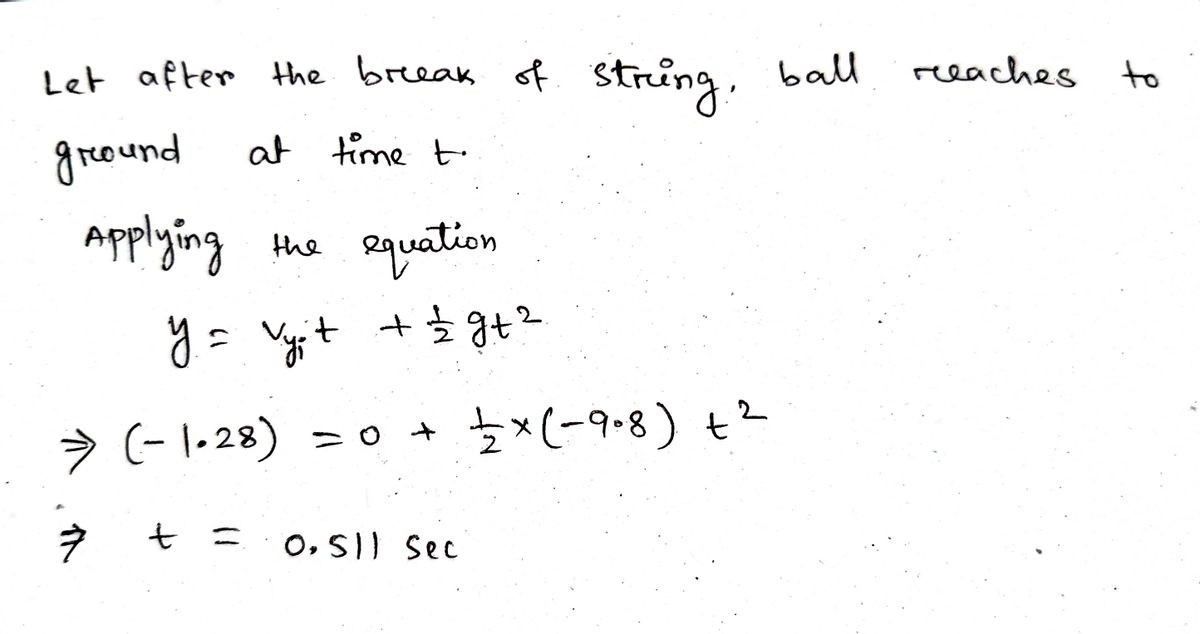 Let after the break of string, ball reaches to
ground at time t.
Applying the equation
y = v_yi t + 1/2 gt²
⇒ (-1.28) = 0 + 1/2 × (-9.8) t²
⇒ t = 0.511 sec